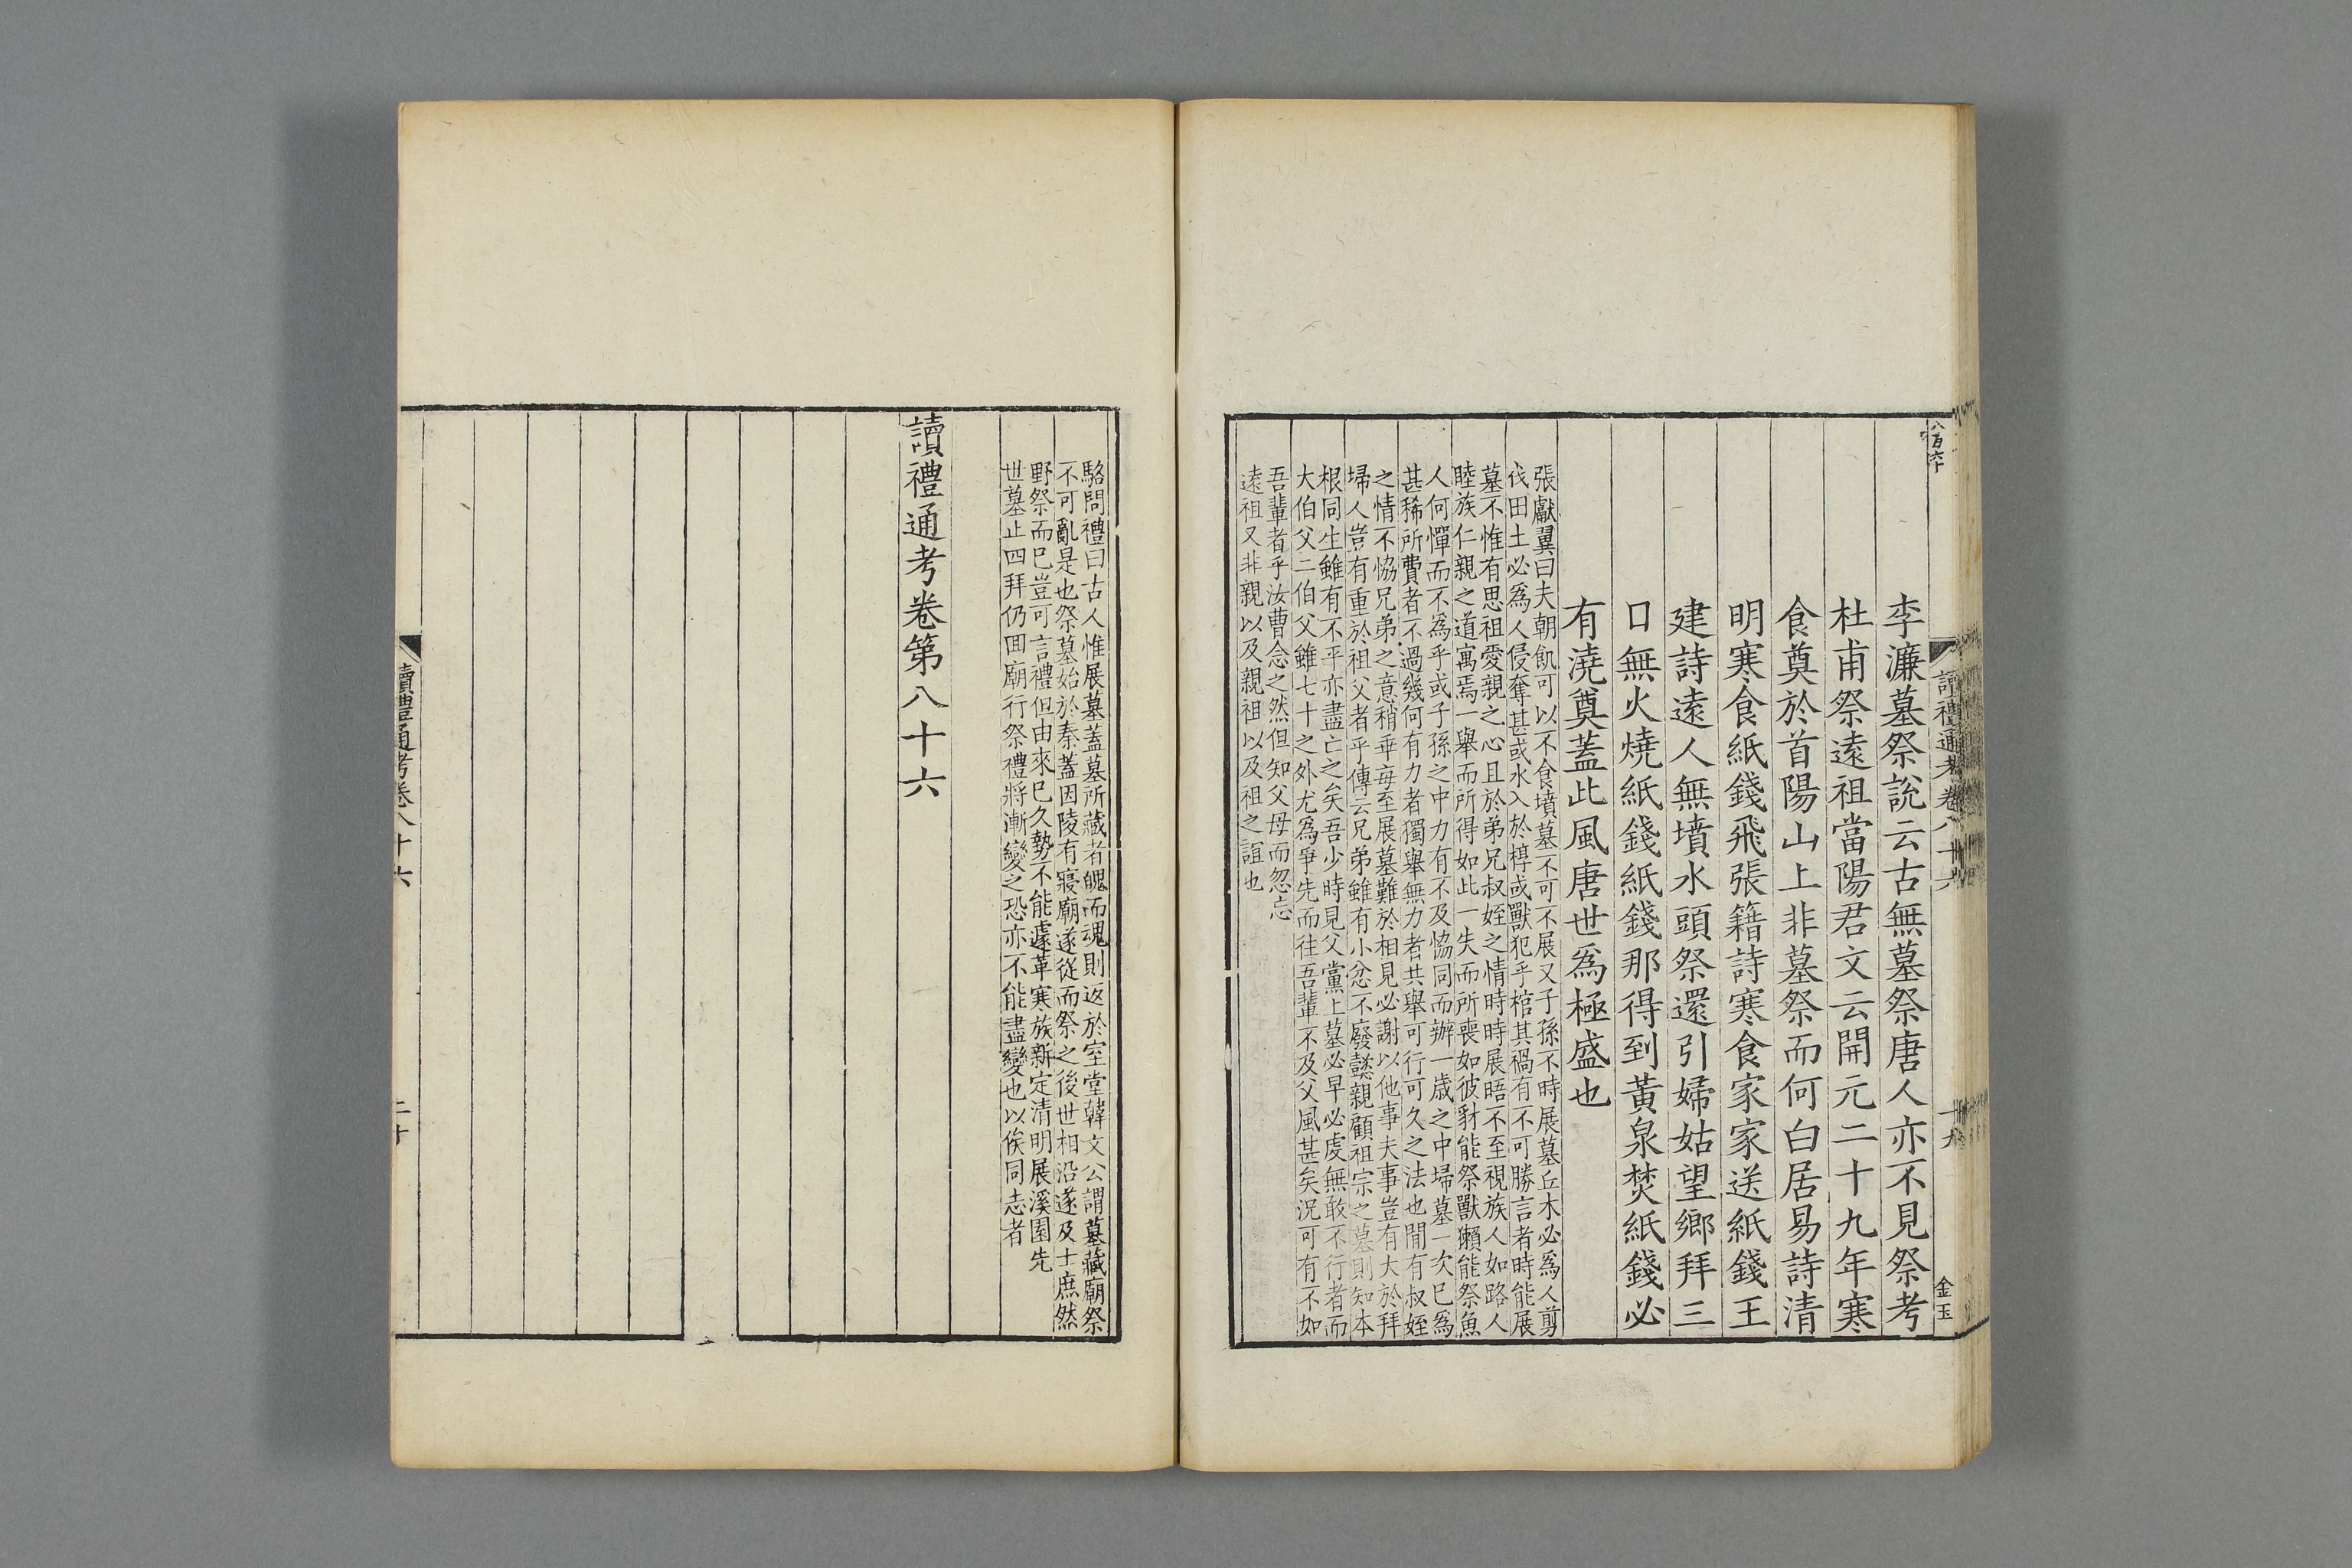 八百六十
讀禮通考卷八十六
十九
金玉
李濂墓祭說云古無墓祭唐人亦不見祭考
杜甫祭遠祖當陽君文云開元二十九年寒
食奠於首陽山上非墓祭而何白居易詩清
明寒食紙錢飛張籍詩寒食家家送紙錢王
建詩遠人無墳水頭祭還引婦姑望鄉拜三
口無火燒紙錢紙錢那得到黃泉焚紙錢必
有澆奠蓋此風唐世爲極盛也
張獻翼曰夫朝飢可以不食墳墓不可不展又子孫不時展墓丘木必爲人剪
伐田土必爲人侵奪甚或水入於槨或獸犯乎棺其禍有不可勝言者時能展
墓不惟有思祖愛親之心且於弟兄叔姪之情時時展晤不至視族人如路人
睦族仁親之道寓焉一舉而所得如此一失而所喪如彼豺能祭獸獺能祭魚
人何憚而不爲乎或子孫之中力有不及協同而辦一歲之中埽墓一次已爲
甚稀所費者不過幾何有力者獨舉無力者共舉可行可久之法也閒有叔姪
之情不協兄弟之意稍乖每至展墓難於相見必謝以他事夫事豈有大於拜
埽人豈有重於祖父者乎傳云兄弟雖有小忿不廢懿親顧祖宗之墓則知本
根同生雖有不平亦盡亡之矣吾少時見父黨上墓必早必虔無敢不行者而
大伯父二伯父雖七十之外尤爲爭先而往吾輩不及父風甚矣況可有不如
吾輩者乎汝曹念之然但知父母而忽忘
遠祖又非親以及親祖以及祖之誼也
駱問禮曰古人惟展墓蓋墓所藏者魄而魂則返於室堂韓文公謂墓藏廟祭
不可亂是也祭墓始於秦蓋因陵有寢廟遂從而祭之後世相沿遂及士庶然
野祭而已豈可言禮但由來已久勢不能遽革寒族新定清明展溪園先
世墓止四拜仍囬廟行祭禮將漸變之恐亦不能盡變也以俟同志者
讀禮通考卷第八十六
讀禮通考卷八十六
二十